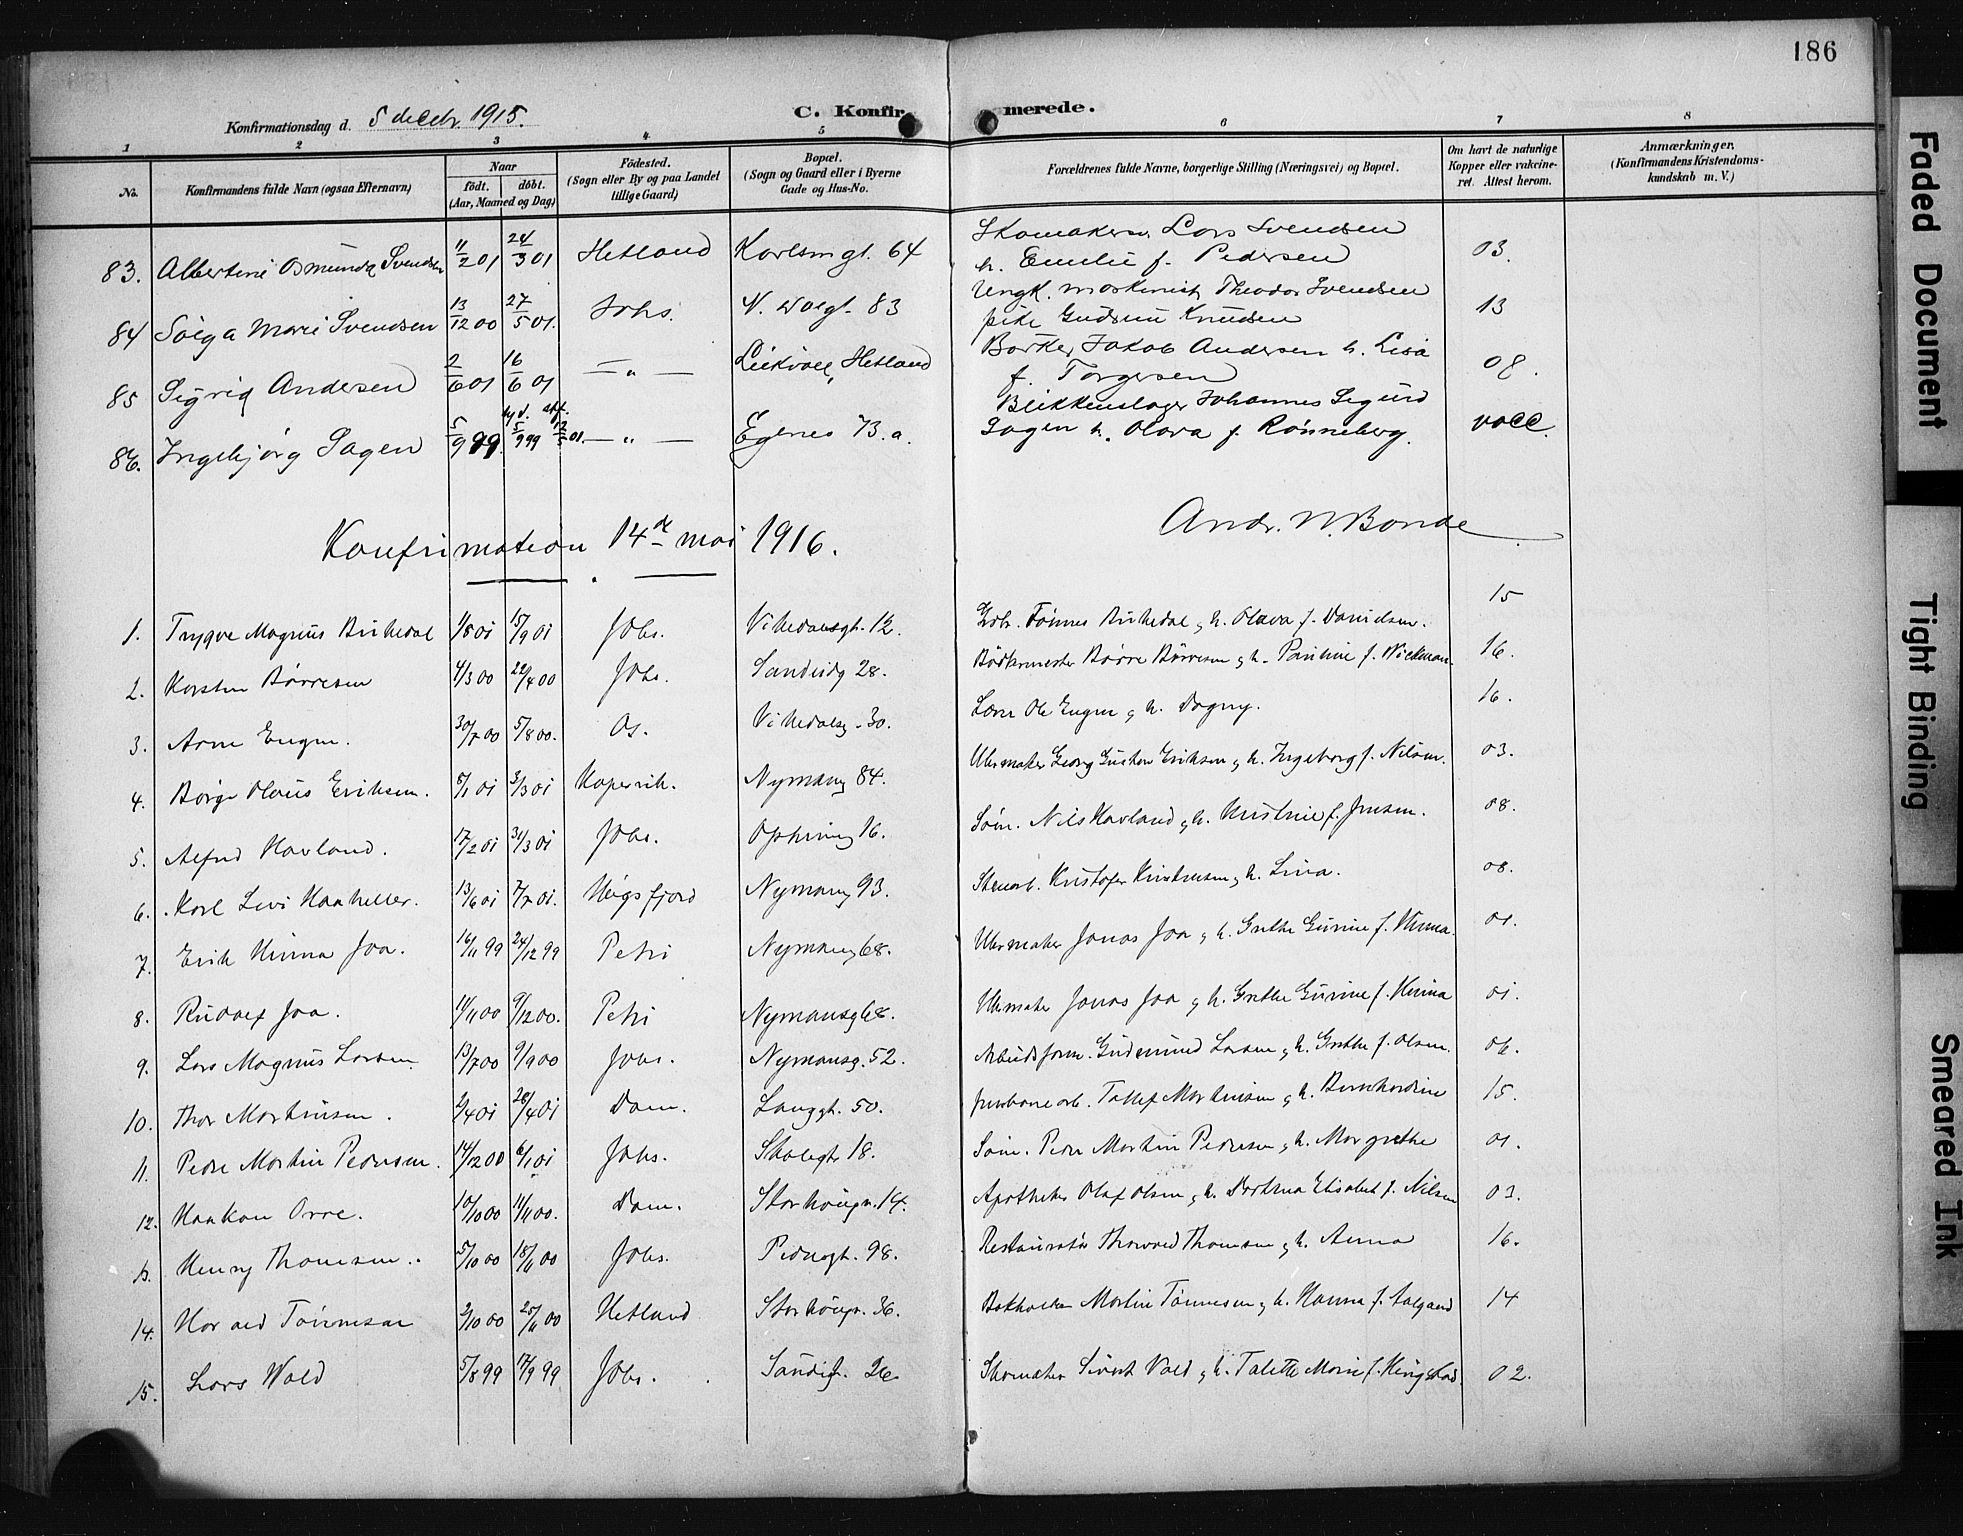 186
Konfirmationsdag d. 5 decbr. 1915.
C. Konfirmerede.
1 2 3 4 5 6 7 8
No. Konfirmandens fulde Navn (ogsaa Efternavn) Naar født. døbt. (Aar, Maaned og Dag) Fødested. (Sogn eller By og paa Landet tillige Gaard) Bopæl. (Sogn og Gaard eller i Byerne Gade og Hus-No. Forældrenes fulde Navne, borgerlige Stilling (Næringsvei) og Bopæl. Om havt de naturlige Kopper eller vakcineret. Attest herom. Anmærkninger. (Konfirmandens Kristendomskundskab m. V.)
83. Albertine Osmunda Svendsen 11/2 01 24/3 01 Hetland Karlsm.gt. 64 Skomaker Lars Svendsen h. Emilie f. Pedersen 03.
84 Solga Marie Svendsen 13/12 00 27/5 01. Johs. N. 83 Ungk. maskinist Theodor Svendsen pike Gudrun Knudsen 13
85 Sigrid Andersen 2/6 01 16/6 01 — " — Hetland Jakob Andersen h. Lisa f. Torgersen 08.
86. Ingebjørg Sagen 5/9 99. 5/9 99 — " — Egenes 73.a. Blikkenslager Johannes Sigurd Sagen h. Olava f. Rønneberg. vacc.
Andr. N. Bonde
Konfirmation 14de mai 1916.
1. Trygve Magnus Birkedal 1/8 01 15/9 01 Johs. Vikedalsgt. 12. Tønnes Birkedal og h. Olava f. Danielsen. 15
2. Karsten Børresen 4/3 00 22/4 00 Johs. Sandsvg 28. Bødkermester Børre Børresen og h. Pauline f. Wickman. 16.
3. Arne Engen. 30/7 00 5/8 00. Os. Vikedalsg. 30. Lærer Ole Engen og h. Dagny. 16.
4. Børge Olaus Eriksen. 5/1 01 3/3 01 Kopervik. Nymansg 84. Uhrmaker Georg Gustav Eriksen og h. Ingeborg f. Nilsen. 03.
5. Alfred Havland. 17/2 01 31/3 01 Johs. 16. Søm. Nils Havland og h. Kristine f. Jensen. 08.
6. Karl Levi Haaheller. 13/6 01 7/7 01. Høgsfjord Nymansg 93. Stenarb. Kristofer Kristensen og h. Lina. 08.
7. Erik Hinna Joa. 16/11 99 24/12 99 Petri Nymansg 68. Uhrmaker Jonas Joa og h. Grethe Gurine f. Hinna. 01.
8. Rudolf Joa. 14/11 00 9/12 00. Petri Nymansg 68. Uhrmaker Jonas Joa og h. Grethe Gurine f. Hinna 01.
9. Lars Magnus Larsen. 13/7 00 9/9 00 Johs. Nymansg. 52. Arbeidsform. Gudmund Larsen og h. Grethe f. Olsen. 06.
10. Thor Martinsen. 2/4 01 28/4 01 Dom. Langgt. 50. Jernbanearb. Tollef Martinsen og h. Bernhardine 15.
11. Peder Martin Pedersen. 14/12 00 6/1 01 Johs. Skolegt. 18. Søm. Peder Martin Pedersen og h. Margrethe 01.
12. Haakon Orre. 10/10 00 11/11 00. Dom. Storhougv. 14. Apotheker Olaf Olsen og h. Elisabet f. Nilsen 03.
13. Henry Thomsen. 5/10 00 18/11 00 Johs. Pedersgt. 98. Restauratør Thorvald Thomsen og h. Anna 16.
14. Harald Tønnesen 2/10 00 25/11 00 Hetland Storhougv. 36. Bokholder Martin Tønnesen og h. Hanna f. Aalgaard 14
15. Lars Vold 5/8 99 17/9 99 Johs. Sandsgt. 26. Skomaker Sivert Vold og h. Talette Marie f. 02.
Faded Document
Tight Binding
Smeared Ink